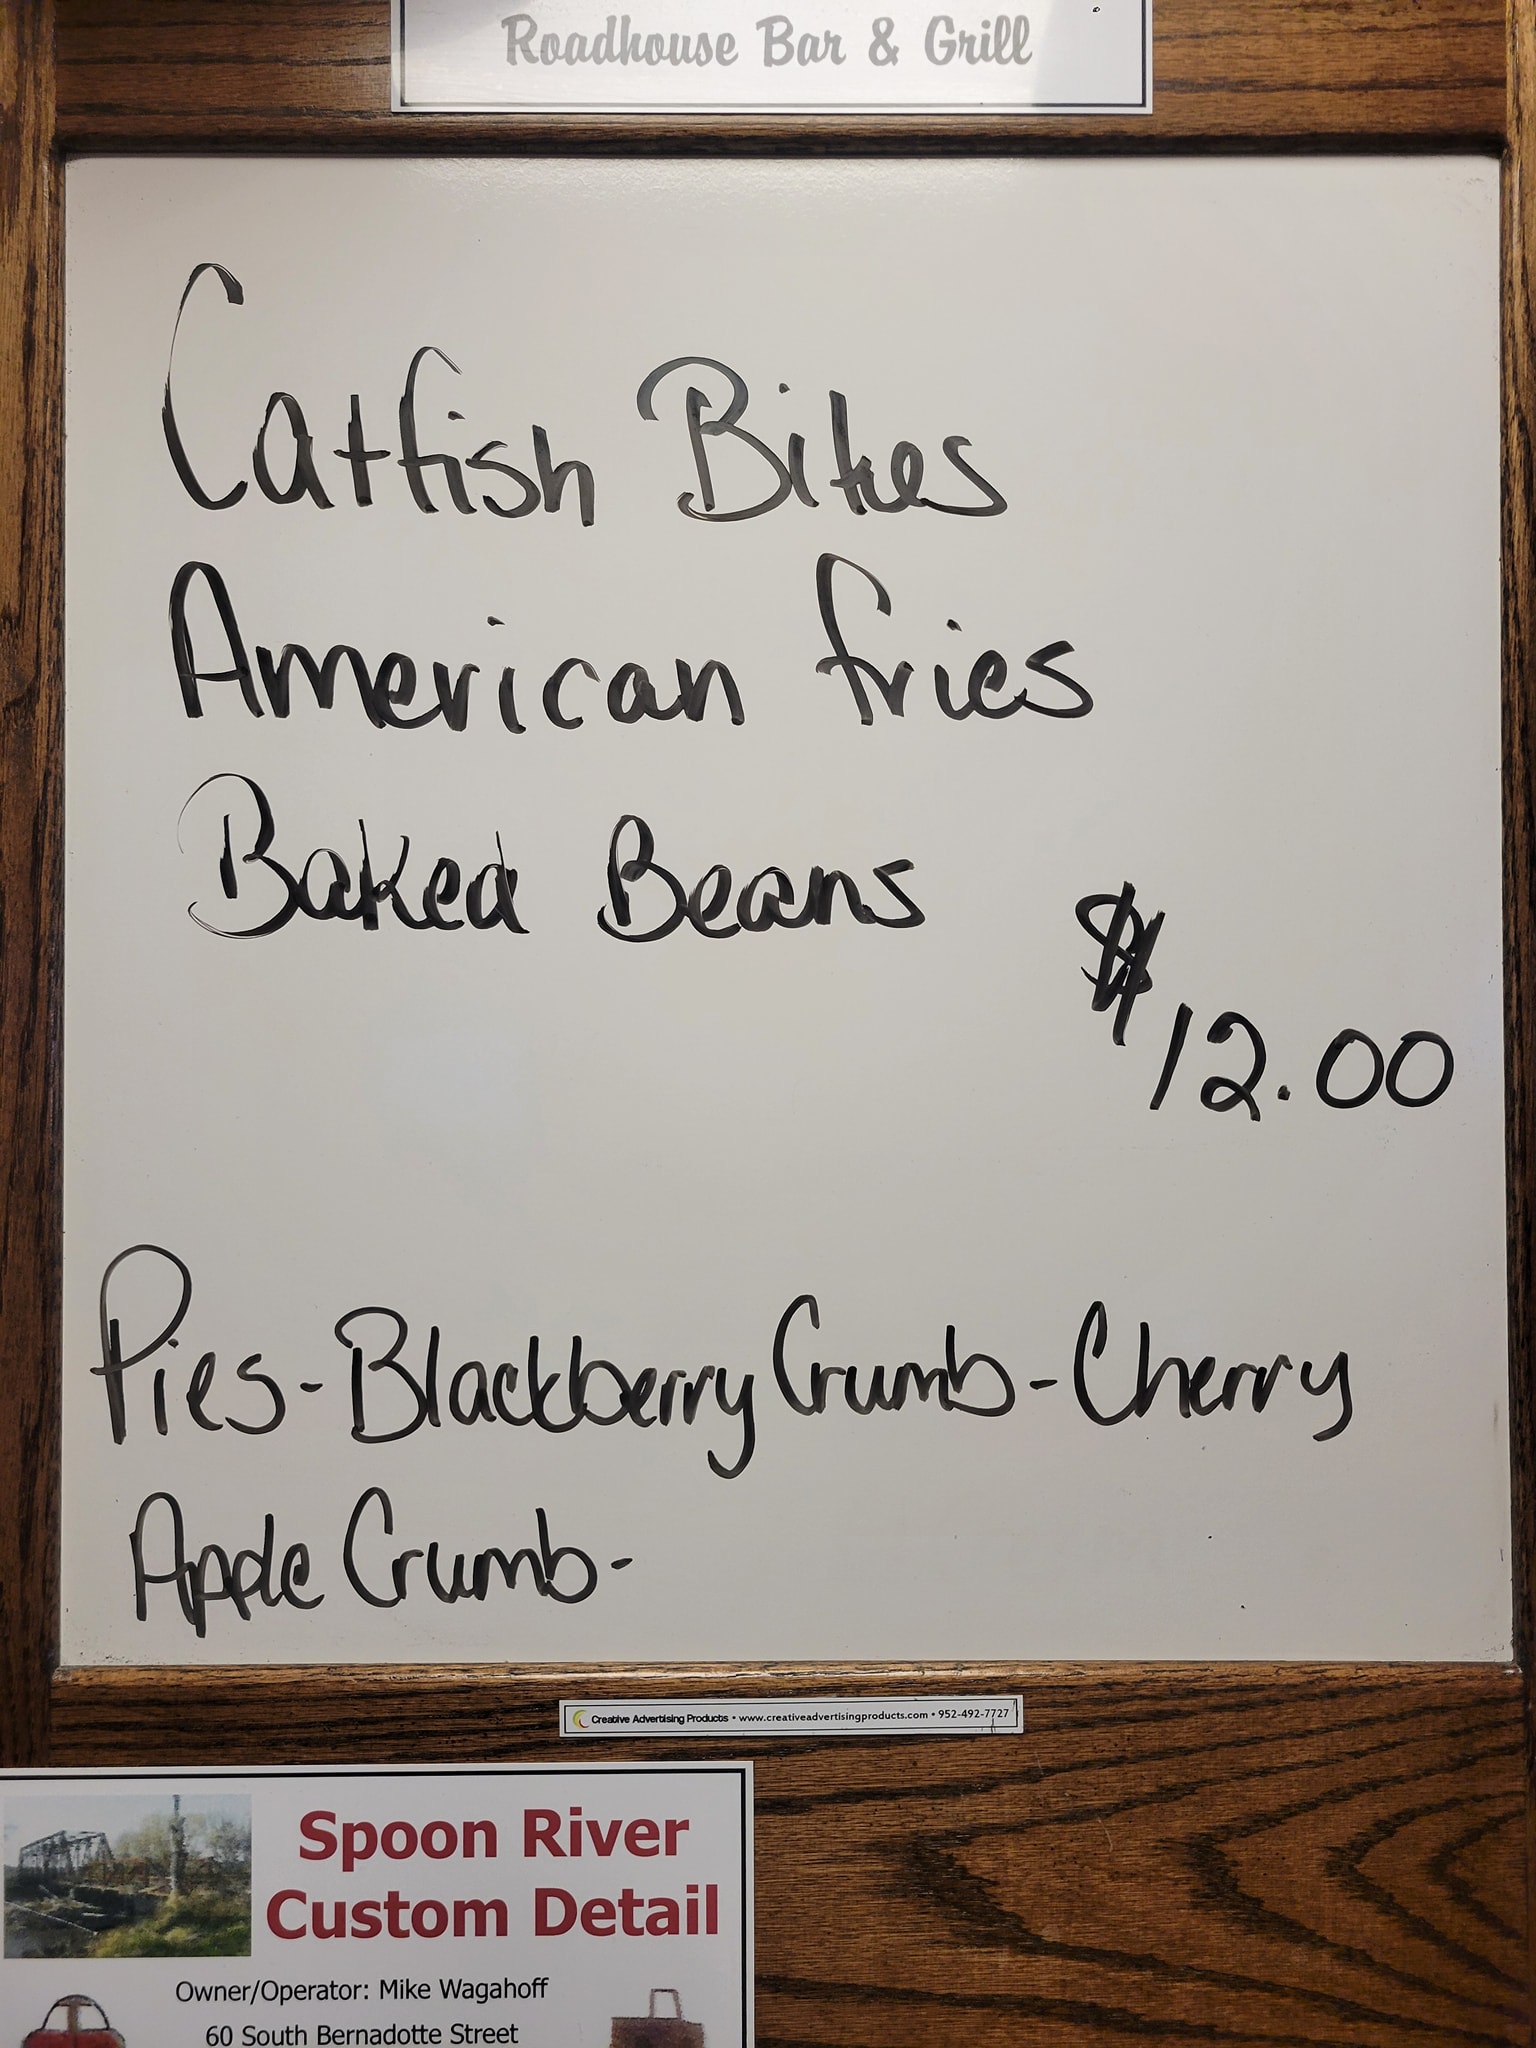 Roadhouse Bar & Grill
Catfish Bites
American fries
Baked Beans
$12.00
Pies - Blackberry Crumb - Cherry
Apple Crumb -
Creative Advertising Products • www.creativeadvertisingproducts.com • 952-492-7727
Spoon River
Custom Detail
Owner/Operator: Mike Wagahoff
60 South Bernadotte Street